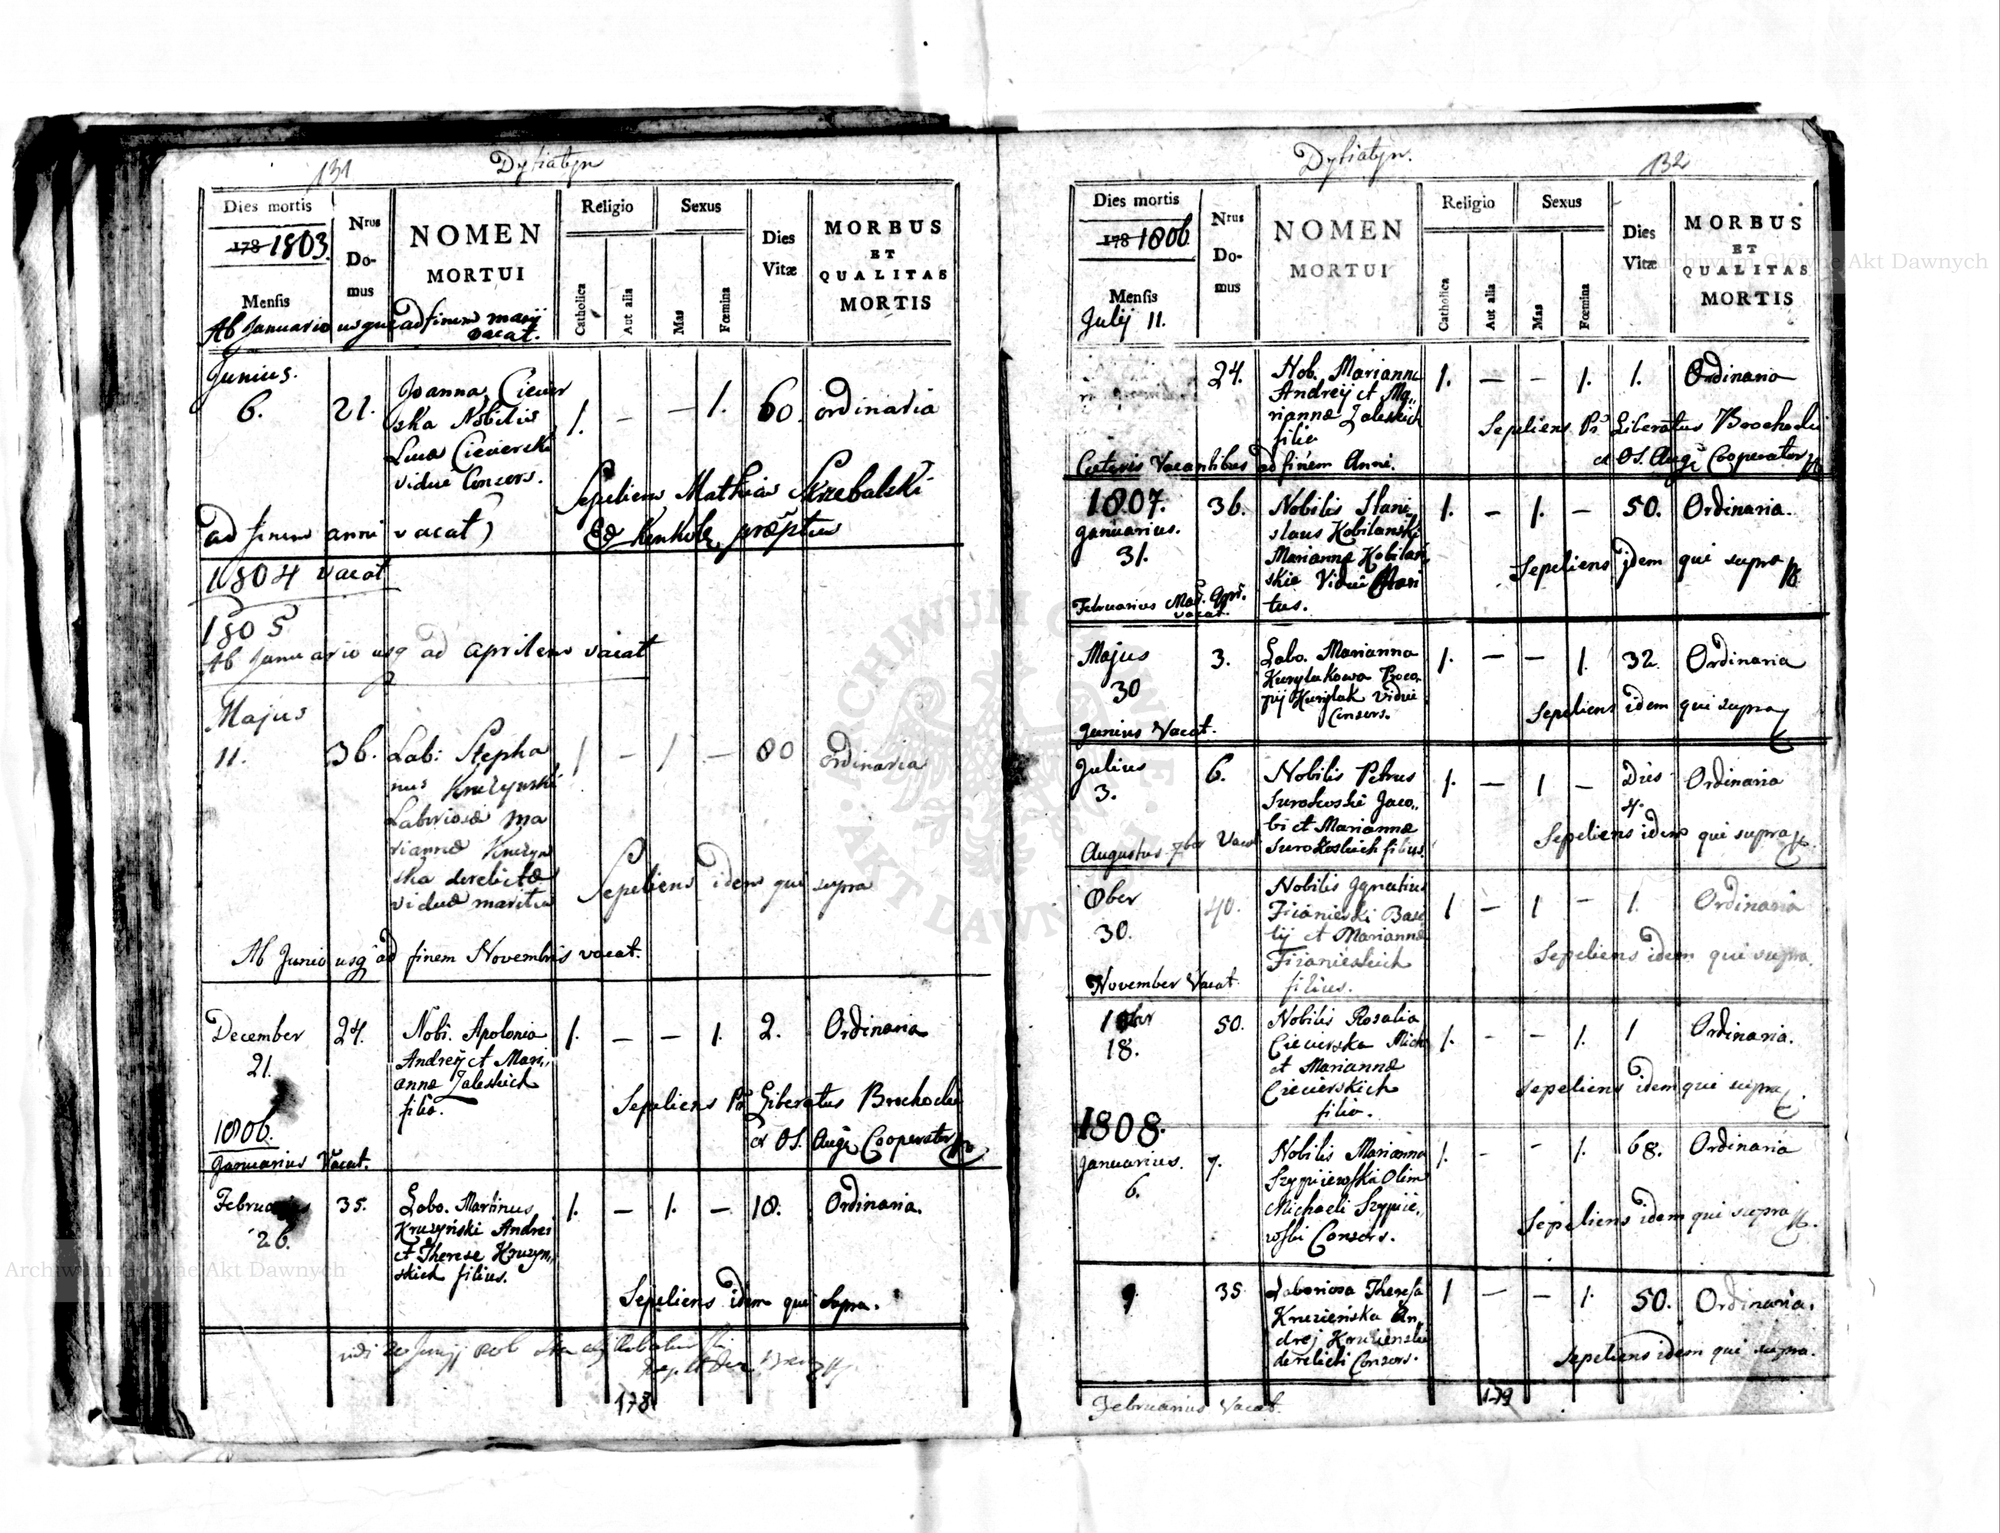 131
Dytiatyn
Dies mortis
178 1803.
Mensis
Nrus
Do-
mus
NOMEN
MORTUI
Religio
Catholica
Aut alia
Sexus
Mas
Fœmina
Dies
Vitæ
MORBUS
ET
QUALITAS
MORTIS
Ab Januario usque ad finem maij
vacat.
Junius.
6. 21. Joanna Ciewer 1. — — 1. 60. ordinaria
ska Nobilis
Luca Cieverski
vidui Consors.
Sepeliens Mathias Skrebalski
ad finem anni vacat)
præptus
1804 vacat
1805
Ab Januario usq ad aprilem vacat
Majus
11. 36. Lab: Stepha 1 — 1 — 80 ordinaria
nus Kruzynski
Laboriosæ Ma
riannæ Kruzyn
ska derelictæ
viduæ maritus
Sepeliens idem qui supra
Ab Junio usq ad finem Novembris vacat.
December 24. Nobi. Apolonia 1. — — 1. 2. Ordinaria
21. Andreij et Mari,,
annæ Zaleskich
filia.
Sepeliens Pr Liberatus Brochocki
Or OS. Augi Cooperator
1806.
Januarius Vacat.
Februarius 35. Labo. Martinus 1. — 1. — 18. Ordinaria.
26. Kruzyński Andrei
et Therese Kruzyn,,
skich filius.
Sepeliens idem qui supra.
178
Dytiatyn.
132
Dies mortis
178 1806.
Mensis
Julij 11.
Nrus
Do-
mus
NOMEN
MORTUI
Religio
Catholica
Aut alia
Sexus
Mas
Fœmina
Dies
Vitæ
MORBUS
ET
QUALITAS
MORTIS
24. Nob. Marianna 1. — — 1. 1. Ordinaria
Andreij et Ma,,
riannæ Zaleskich
filia
Sepeliens Pr Liberatus Brochocki
Or OS. Augi Cooperator
Cæteris Vacantibus ad finem Anni.
1807. 36. Nobilis Stani 1. — 1. — 50. Ordinaria.
Januarius. slaus Kobilanski
31. Mariannæ Kobilań
skie Vidui Mari
tus.
Sepeliens idem qui supra
Februarius Mar. Apri.
vacat.
Majus 3. Labo. Marianna 1. — — 1. 32. Ordinaria
30 Kurylakowa Proco
pij Kurylak Vidui
Consors.
Sepeliens idem qui supra
Junius Vacat.
Julius 6. Nobilis Petrus 1. — 1 — Dies Ordinaria
3. Surokoski Jaco,, 4.
bi et Mariannæ
Surokoskich filius.
Sepeliens idem qui supra
Augustus 7ber Vacat
Ober 40. Nobilis Ignatius 1 — 1 — 1. Ordinaria
30. Basi
lij et Mariannæ
filius.
Sepeliens idem qui supra.
November Vacat.
18. 50. Nobilis Rosalia 1. — — 1. 1 Ordinaria.
Cieverska Mich
et Mariannæ
Cieverskich
filia.
Sepeliens idem qui supra
1808.
Januarius. 7. Nobilis Marianna 1. — — 1. 68. Ordinaria
6. Olim
Michaeli
Consors.
Sepeliens idem qui supra
9. 35 Laboriosa Theresa 1 — — 1. 50. Ordinaria.
Kruzieńska An,,
drej Kruzienski
derelicti Consors.
Sepeliens idem qui supra.
Februarius Vacat.
179
Archiwum Główne Akt Dawnych
Archiwum Główne Akt Dawnych
ARCHIWUM GŁÓWNE AKT DAWNYCH